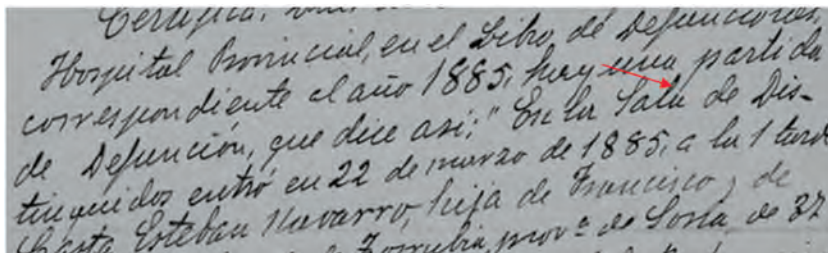 Certifica:
Hospital Provincial, en el Libro de Defunciones,
correspondiente al año 1885, hay una partida
de Defunción, que dice así: "En la Sala de Dis-
tinguidos entró en 22 de marzo de 1885, a la 1 tarde
Casta Esteban Navarro, hija de Francisco y de
de Torrubia, prov.ª de Soria de 37